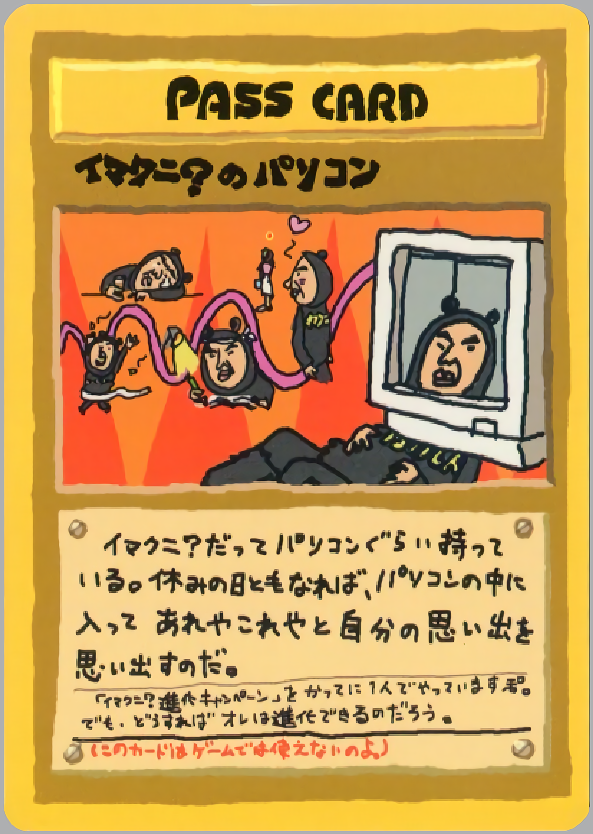 PASS CARD
イマクニ?のパソコン
イマクニ?だってパソコンぐらい持って
いる。休みの日ともなれば、パソコンの中に
入って あれやこれやと自分の思い出を
思い出すのだ。
「イマクニ?進化キャンペーン」をかってに1人でやっていますぞ。
でも、どうすれば オレは進化できるのだろう。
(このカードはゲームでは使えないのよ。)